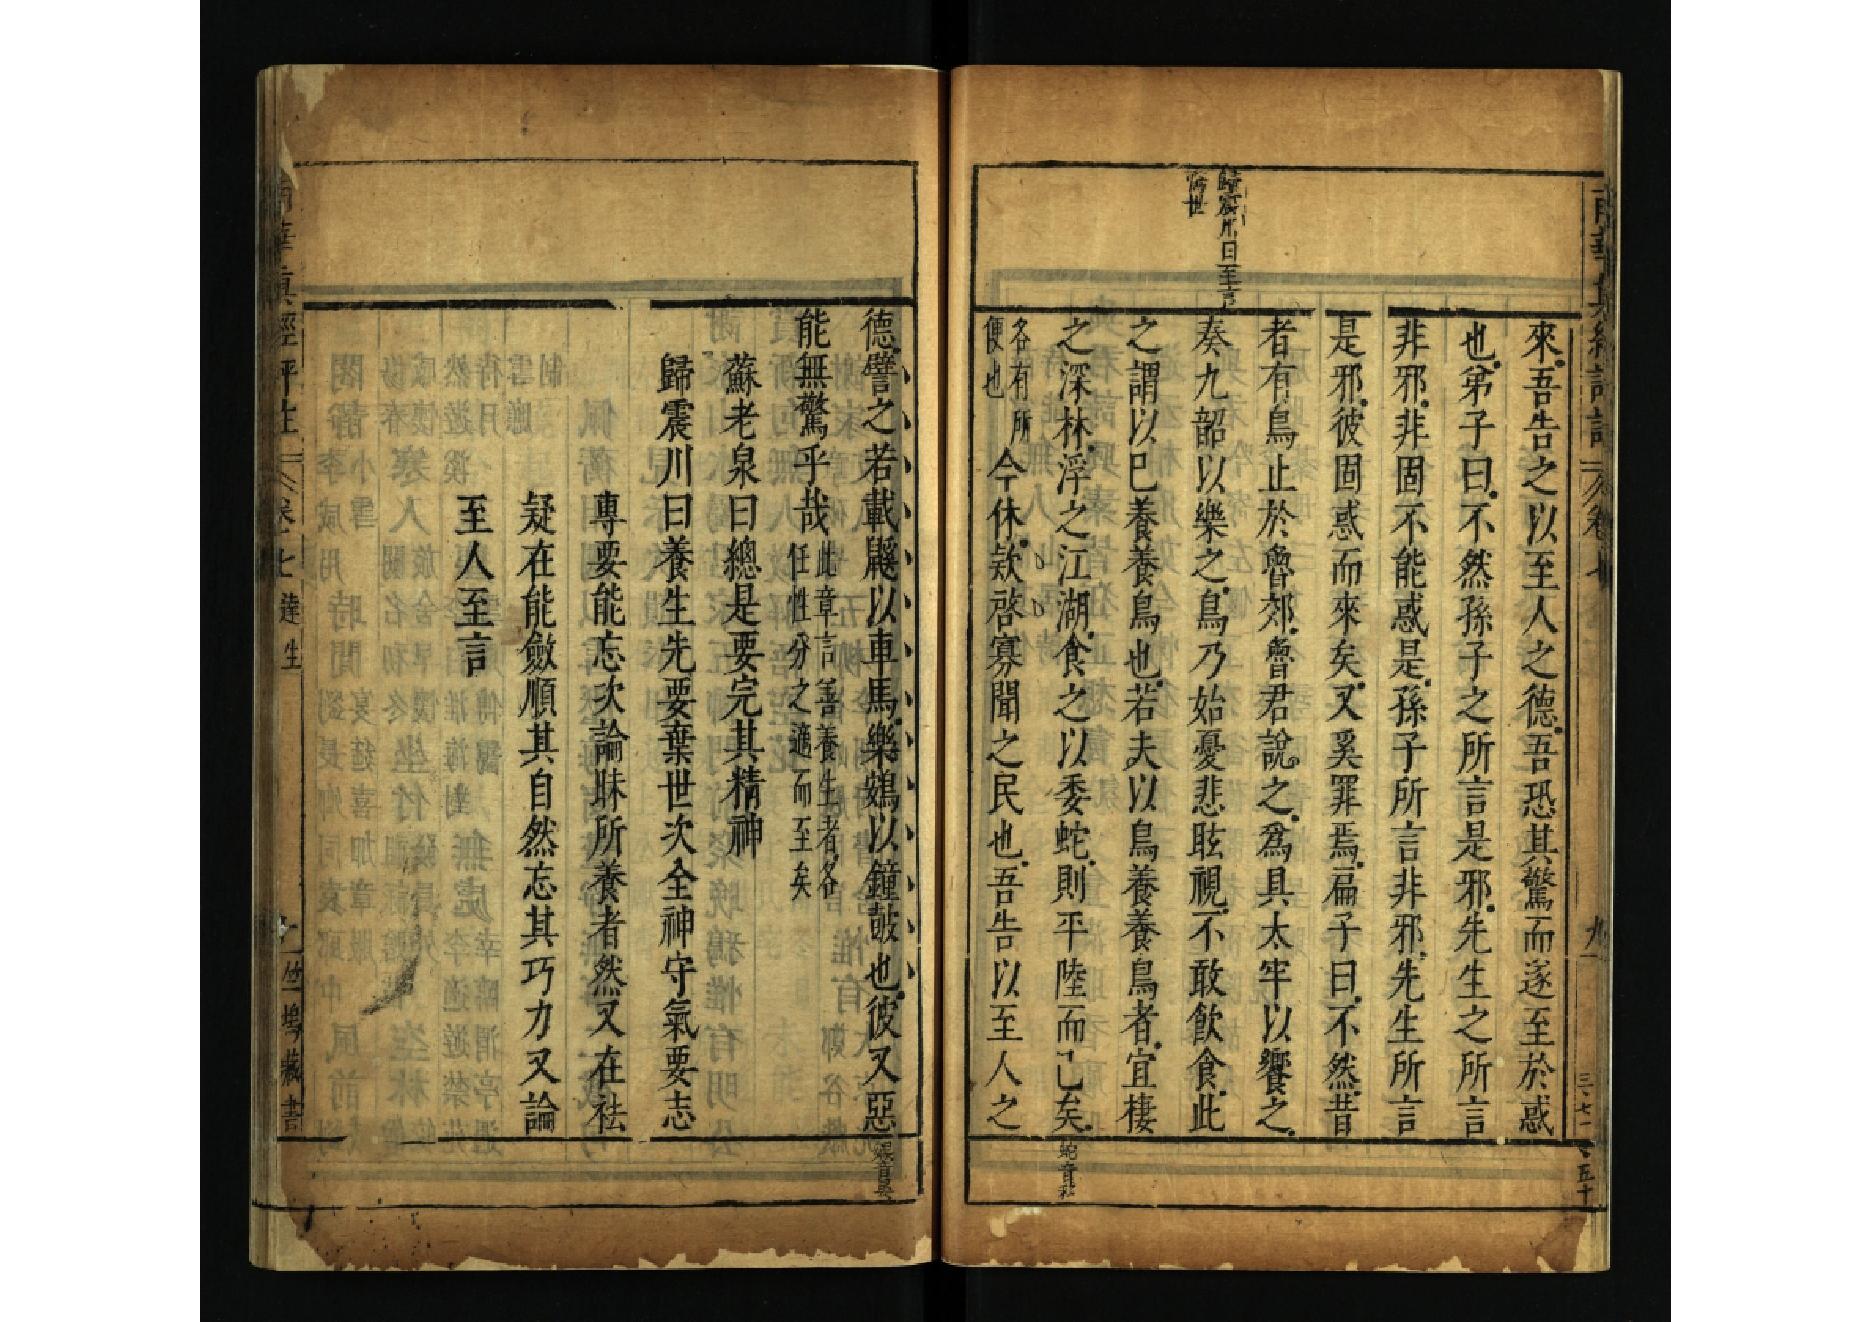 歸震川曰至言
來吾告之以至人之德吾恐其驚而遂至於惑
也弟子曰不然孫子之所言是邪先生之所言
非邪非固不能惑是孫子所言非邪先生所言
是邪彼固惑而來矣又奚罪焉扁子曰不然昔
者有鳥止於魯郊魯君說之為具太牢以饗之
奏九韶以樂之鳥乃始憂悲眩視不敢飲食此
之謂以已養養鳥也若夫以鳥養養鳥者宜棲
之深林浮之江湖食之以委蛇則平陸而已矣
各有所
便也
今休欵啓寡聞之民也吾告以至人之
德譬之若載鼷以車馬樂鴳以鐘鼓也彼又惡
能無驚乎哉
此章言善養生者各
任性分之適而至矣
蘇老泉曰總是要完其精神
歸震川曰養生先要棄世次全神守氣要志
專要能忘次論昧所養者然又在祛
疑在能斂順其自然忘其巧力又論
至人至言
南華真經評註
達生
竺塢藏書